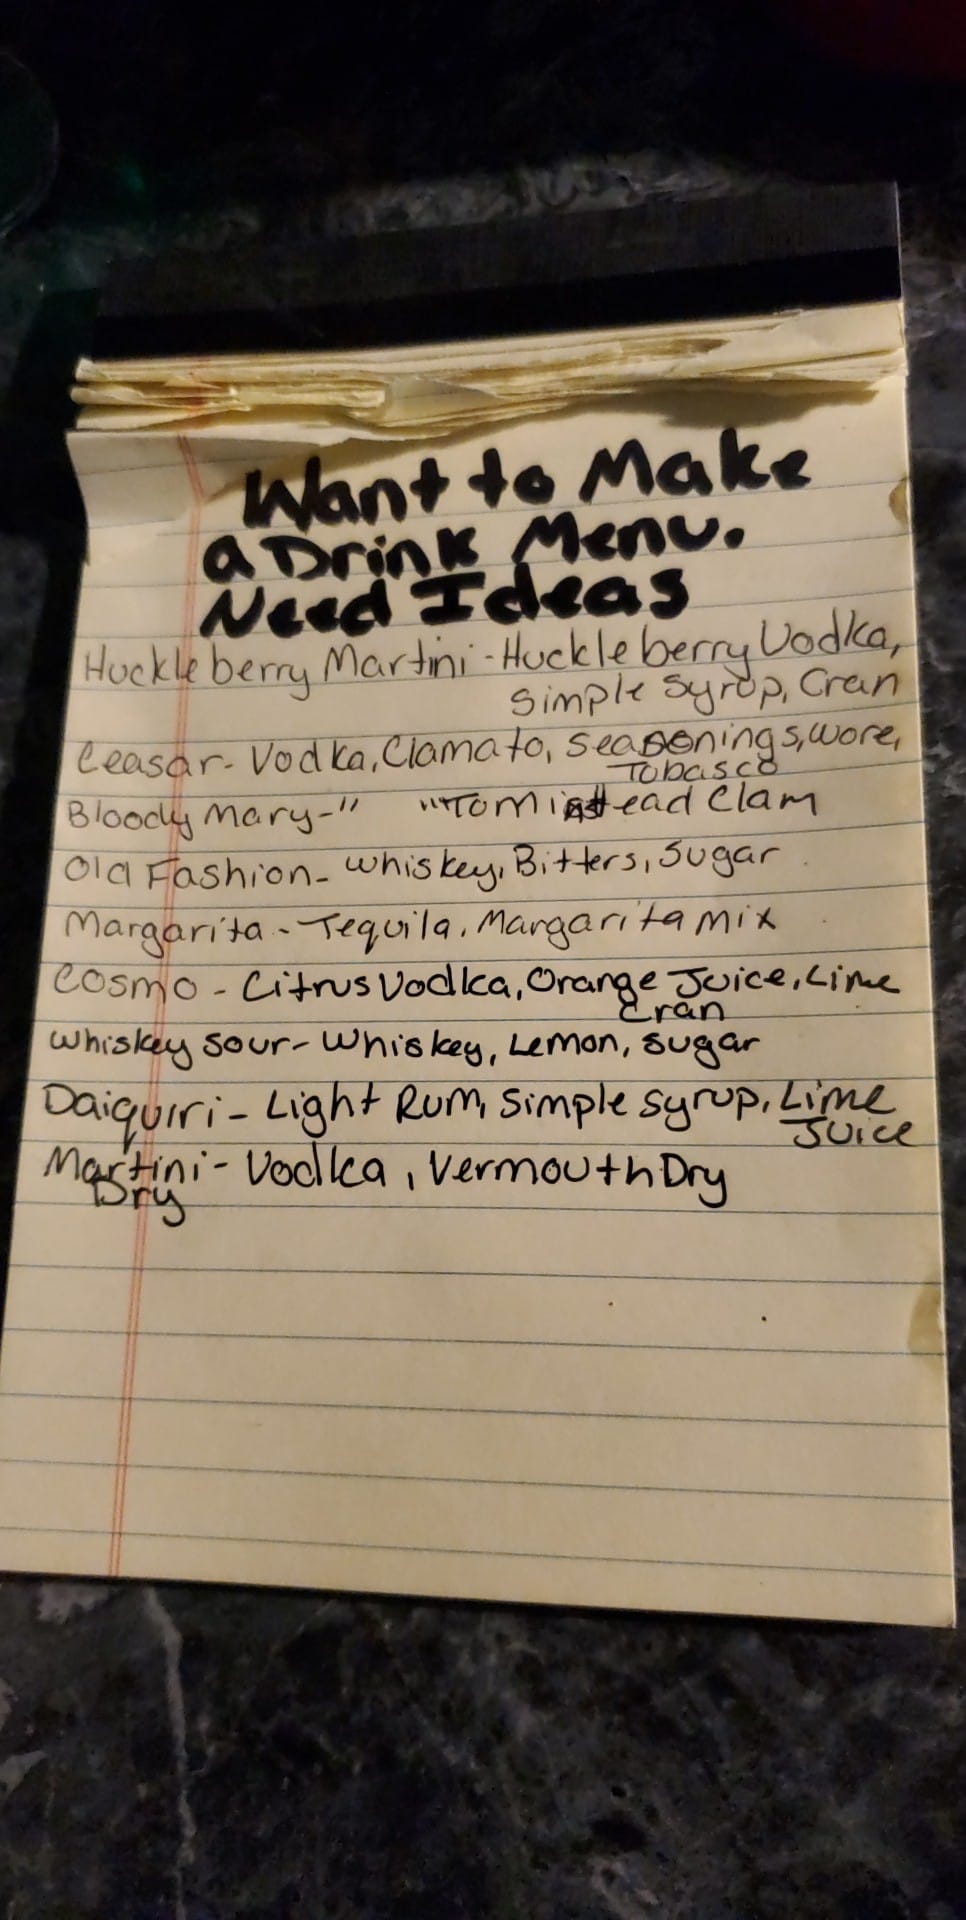 Want to Make
a Drink Menu.
Need Ideas
Huckleberry Martini - Huckleberry Vodka,
Simple Syrup, Cran
Ceasar - Vodka, Clamato, Seasonings, wore,
Tobasco
Bloody Mary - " "Tom instead Clam
Old Fashion - whiskey, Bitters, Sugar
Margarita - Tequila, Margarita mix
Cosmo - Citrus Vodka, Orange Juice, Lime
Cran
Whiskey Sour - Whiskey, Lemon, Sugar
Daiquiri - Light Rum, Simple syrup, Lime
Juice
Martini - Vodka, Vermouth Dry
Dry